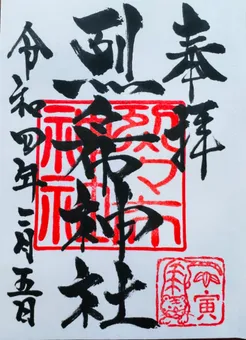 奉拝
烈々布神社
令和四年二月五日
寅